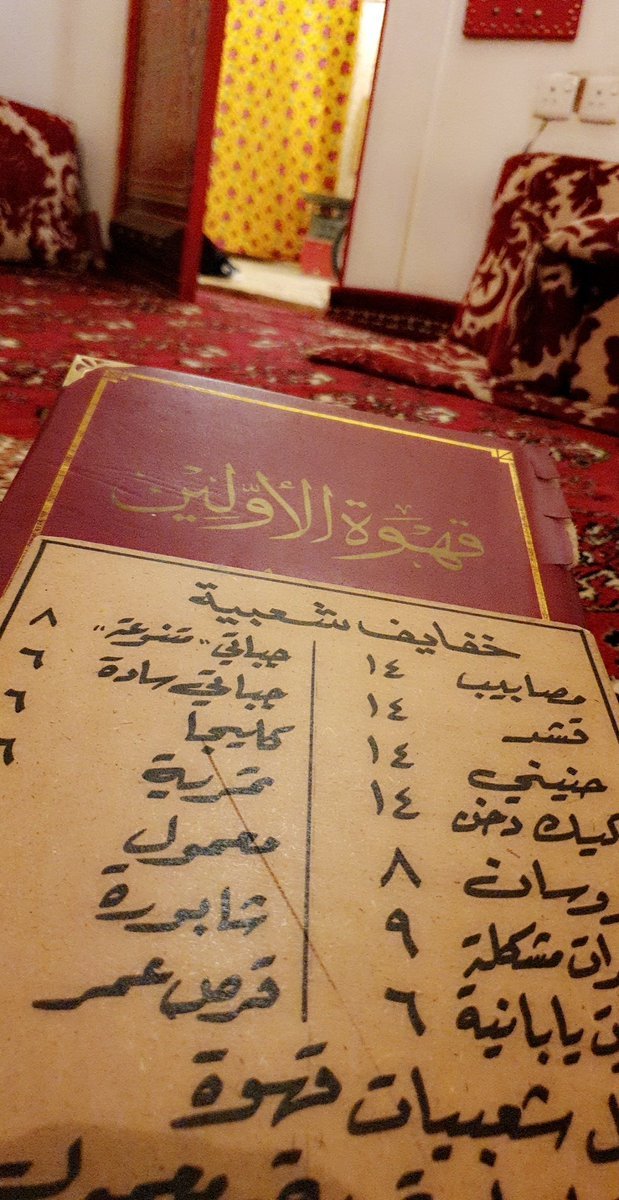 قهوة الأولين
خفايف شعبية
مصابيب ١٤
قشد ١٤
حنيني ١٤
كيك دخن ١٤
٨
مشكلة ٩
يابانية ٦
جباتي "متنوعة" ٨
جباتي سادة ٦
كليجا ٦
تمرية ٦
معمول
شابورة
قرص عمر
شعبيات قهوة